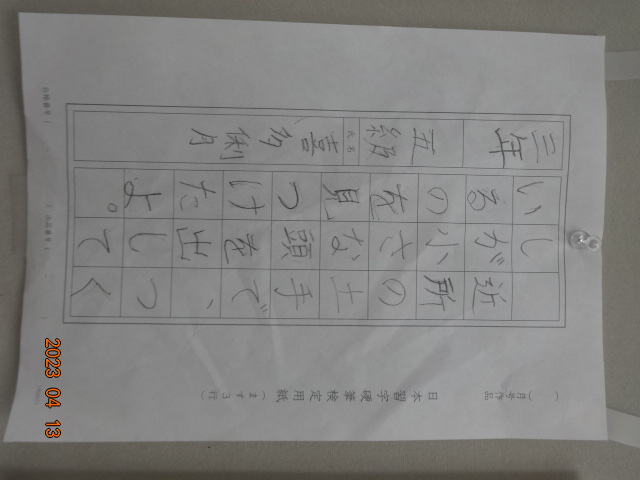 ( )月号作品
日本習字硬筆検定用紙(ます3行)
近所の土手で、つく
しが小さな頭を出して
いるのを見つけたよ。
三年 五組 氏名 喜多俐月
2023 04 13